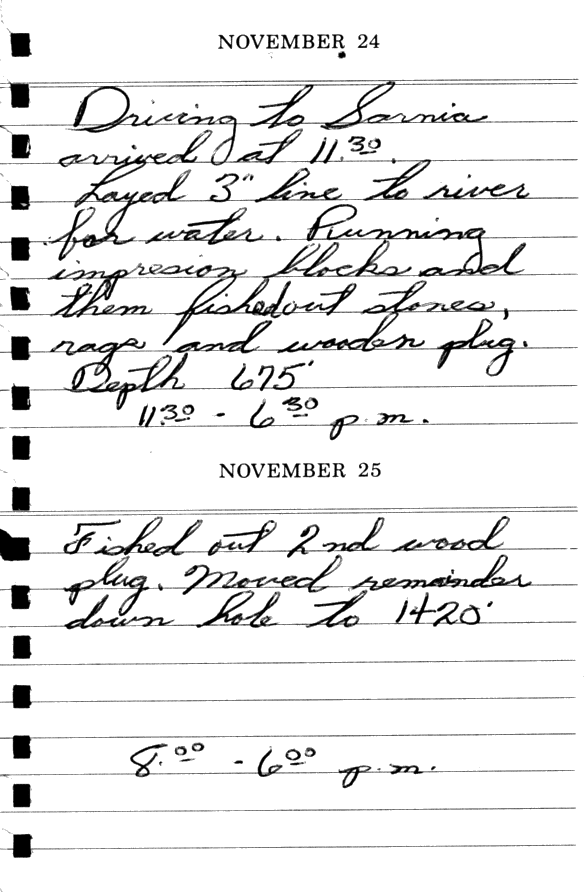 NOVEMBER 24
Driving to Sarnia
arrived at 11.30.
Layed 3" line to river
for water. Running
impresion blocks and
them fished out stones,
rags and wooden plug.
Depth 675'
11.30 - 6 30 p.m.
NOVEMBER 25
Fished out 2nd wood
plug. Moved remainder
down hole to 1420'
8.00 - 6 00 p.m.